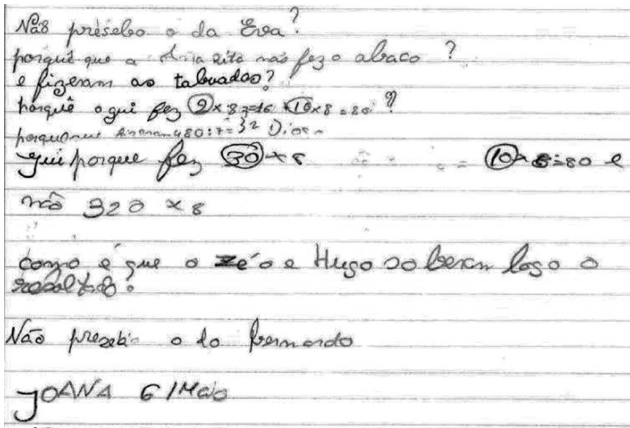 Não présebo o da Eva?
porquê que a Ana rita não fez o abaco ?
e fizeram as tabuadas?
pòrquê o gui fez 2×8=16 10×8=80 ?
480:
gui porque fez 30×8 = 10×8=80 e
não 320 ×8
como é que o zé o e Hugo soberam logo o
resoltado?
Não prezebi o do bernardo
JOANA 6/Maio